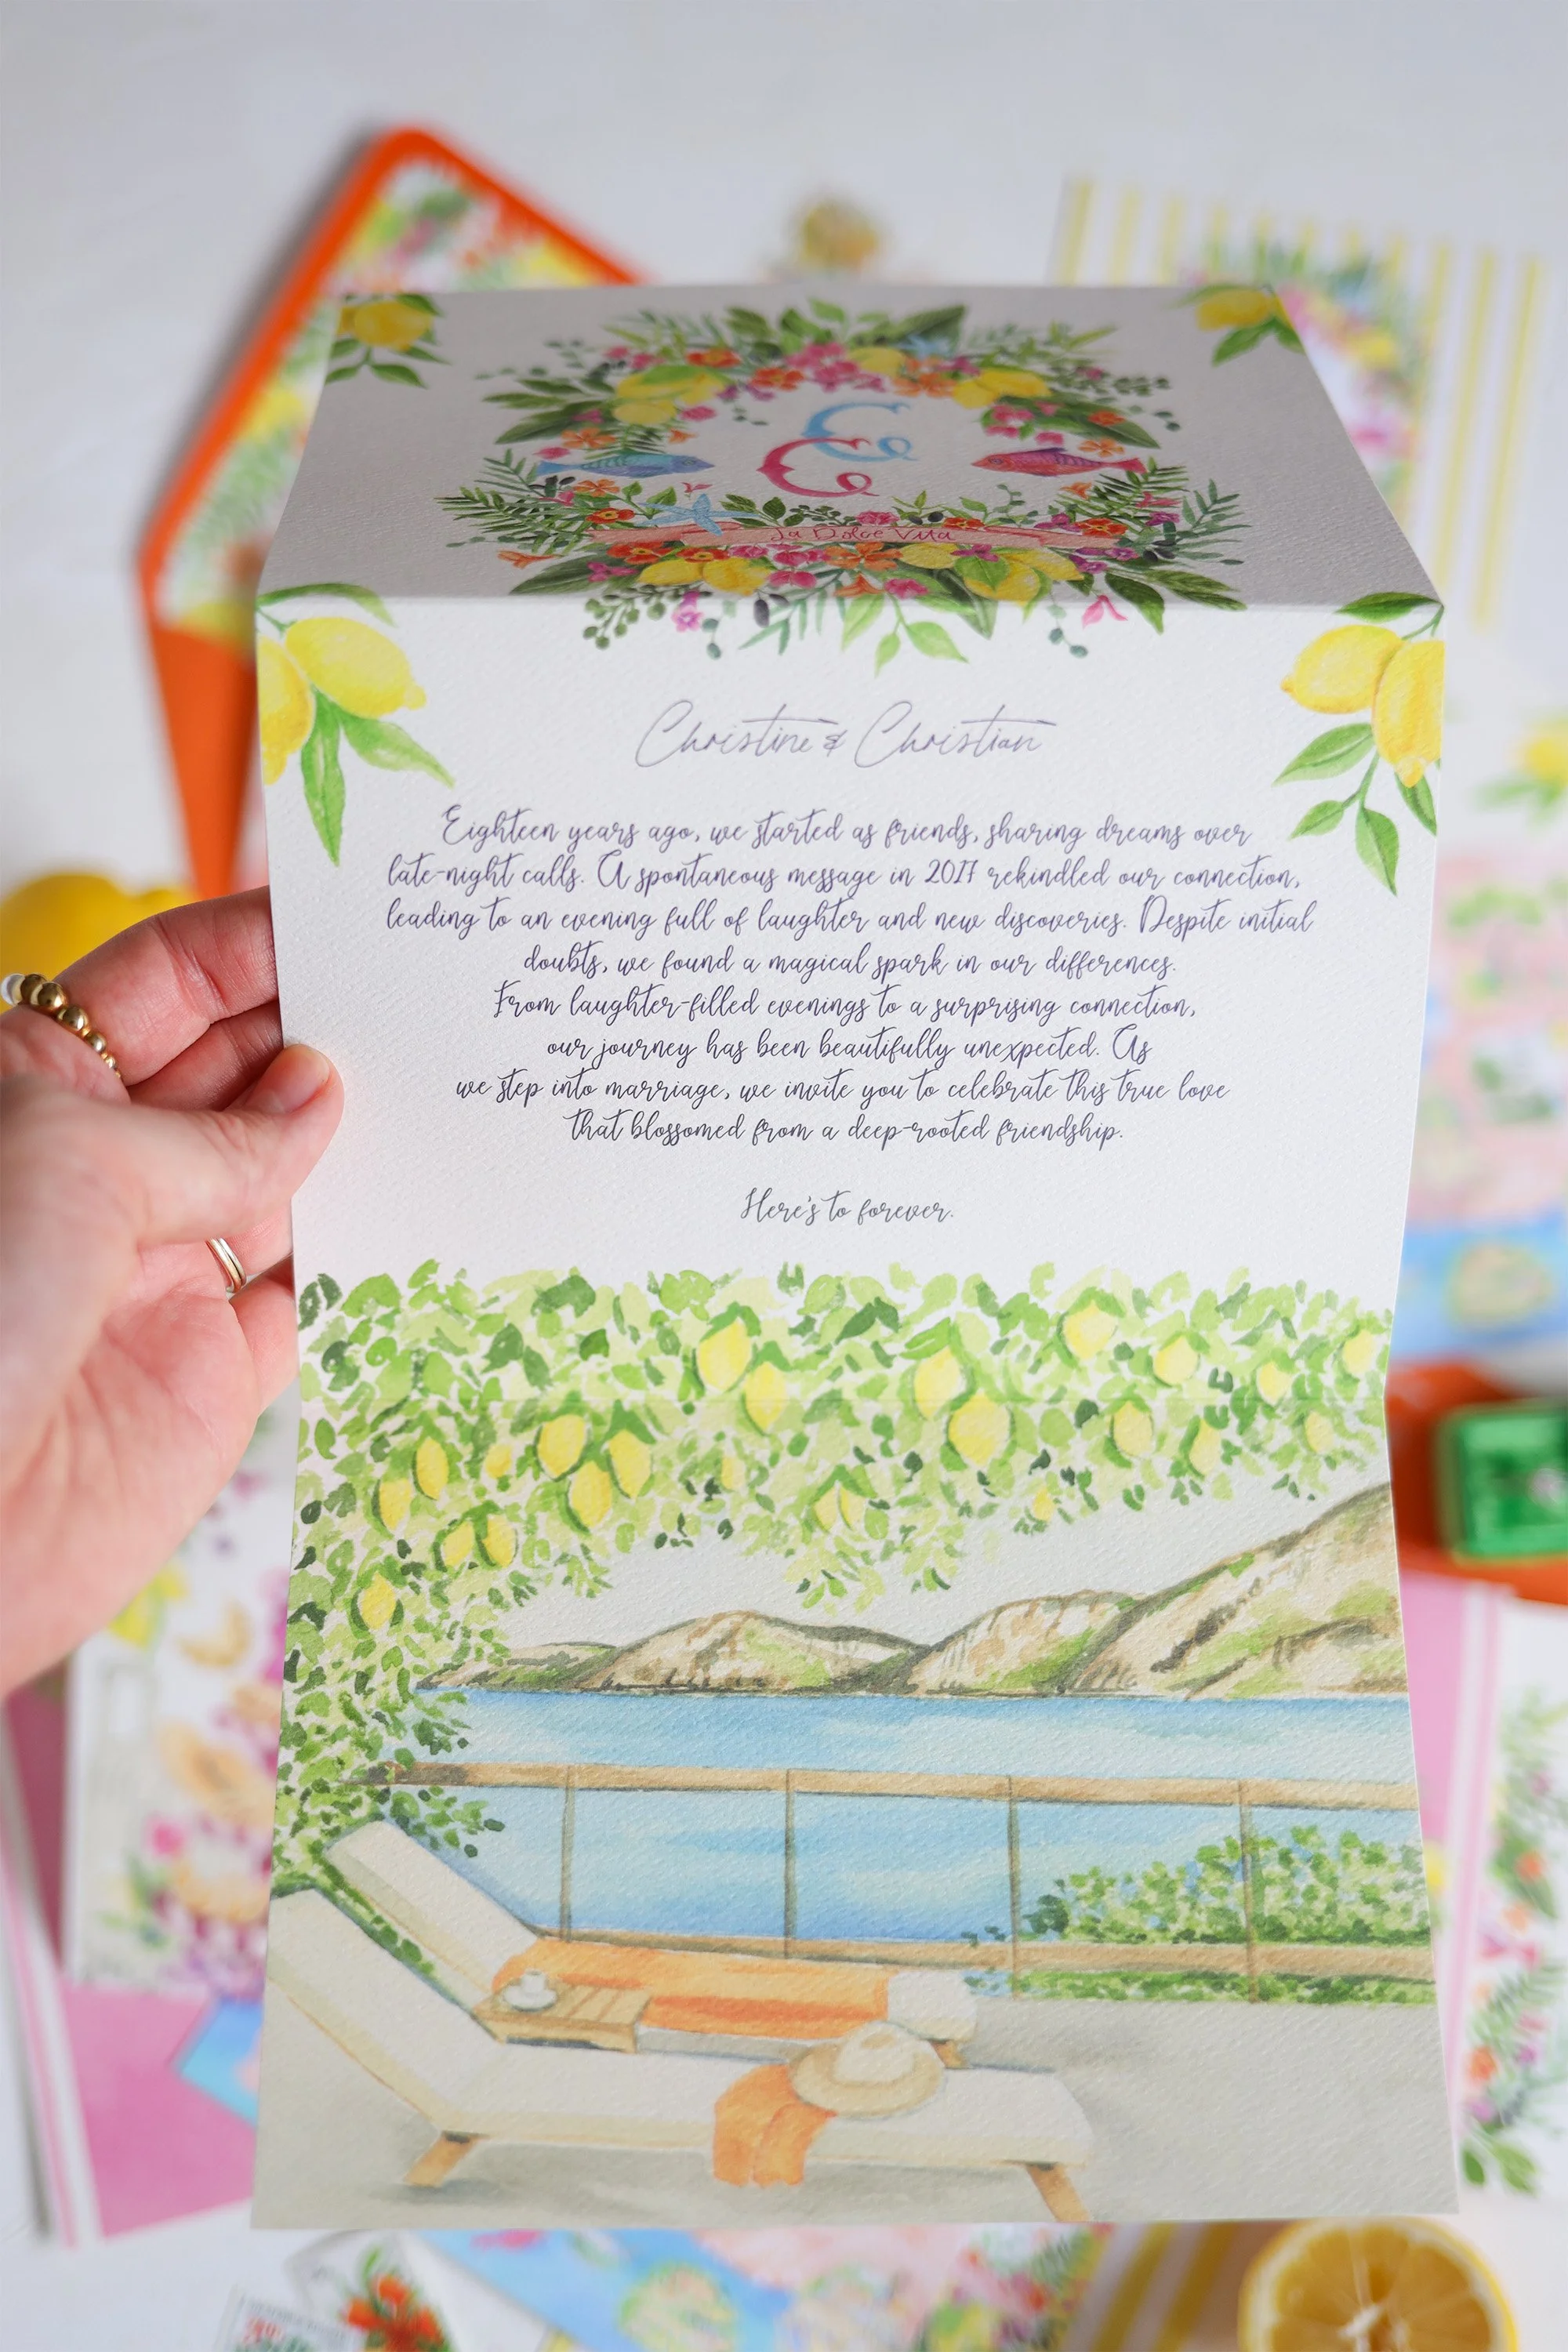 C
C
La Dolce Vita
Christine & Christian
Eighteen years ago, we started as friends, sharing dreams over
late-night calls. A spontaneous message in 2017 rekindled our connection,
leading to an evening full of laughter and new discoveries. Despite initial
doubts, we found a magical spark in our differences.
From laughter-filled evenings to a surprising connection,
our journey has been beautifully unexpected. As
we step into marriage, we invite you to celebrate this true love
that blossomed from a deep-rooted friendship.
Here's to forever.